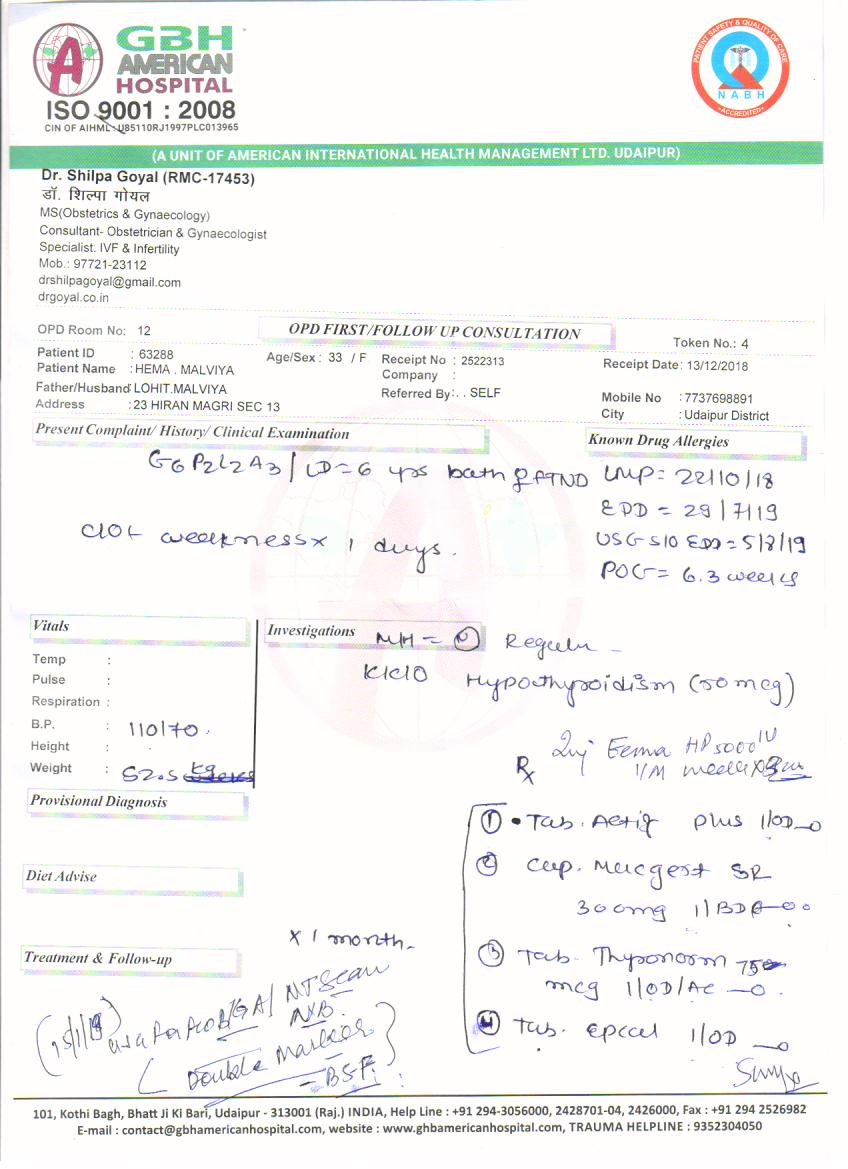 GBH
AMERICAN
HOSPITAL
ISO 9001 : 2008
CIN OF AIHML : U85110RJ1997PLC013965
PATIENT SAFETY & QUALITY OF CARE
NABH
ACCREDITED
(A UNIT OF AMERICAN INTERNATIONAL HEALTH MANAGEMENT LTD. UDAIPUR)
Dr. Shilpa Goyal (RMC-17453)
डॉ. शिल्पा गोयल
MS(Obstetrics & Gynaecology)
Consultant- Obstetrician & Gynaecologist
Specialist: IVF & Infertility
Mob.: 97721-23112
drshilpagoyal@gmail.com
drgoyal.co.in
OPD Room No: 12 OPD FIRST/FOLLOW UP CONSULTATION Token No.: 4
Patient ID : 63288 Age/Sex : 33 / F Receipt No : 2522313 Receipt Date: 13/12/2018
Patient Name : HEMA . MALVIYA Company :
Father/Husband : LOHIT.MALVIYA Referred By : . . SELF Mobile No : 7737698891
Address : 23 HIRAN MAGRI SEC 13 City : Udaipur District
Present Complaint/ History/ Clinical Examination Known Drug Allergies
G6P2L2A3 / LD = 6 yrs both FTND LMP = 22/10/18
EDD = 29/7/19
C/O weakness x 1 days. USG S/O EDD = 5/8/19
POG = 6.3 weeks
Vitals Investigations MH = N Regular
Temp :
Pulse : K/C/O Hypothyroidism (50 mcg)
Respiration :
B.P. : 110/70.
Height :
Weight : 52.5 kg
Rx Inj Eema HP 5000 IU
I/M
Provisional Diagnosis
1 Tab. Actif plus 1/OD
Diet Advise
2 Cap. Mucgest SR
300mg 1/BD
x 1 month
Treatment & Follow-up
3 Tab. Thyronorm 75
mcg 1/OD/AC
4 Tab. epccel 1/OD
15/1/19
NT Scan
Double Marker
101, Kothi Bagh, Bhatt Ji Ki Bari, Udaipur - 313001 (Raj.) INDIA, Help Line : +91 294-3056000, 2428701-04, 2426000, Fax : +91 294 2526982
E-mail : contact@gbhamericanhospital.com, website : www.ghbamericanhospital.com, TRAUMA HELPLINE : 9352304050